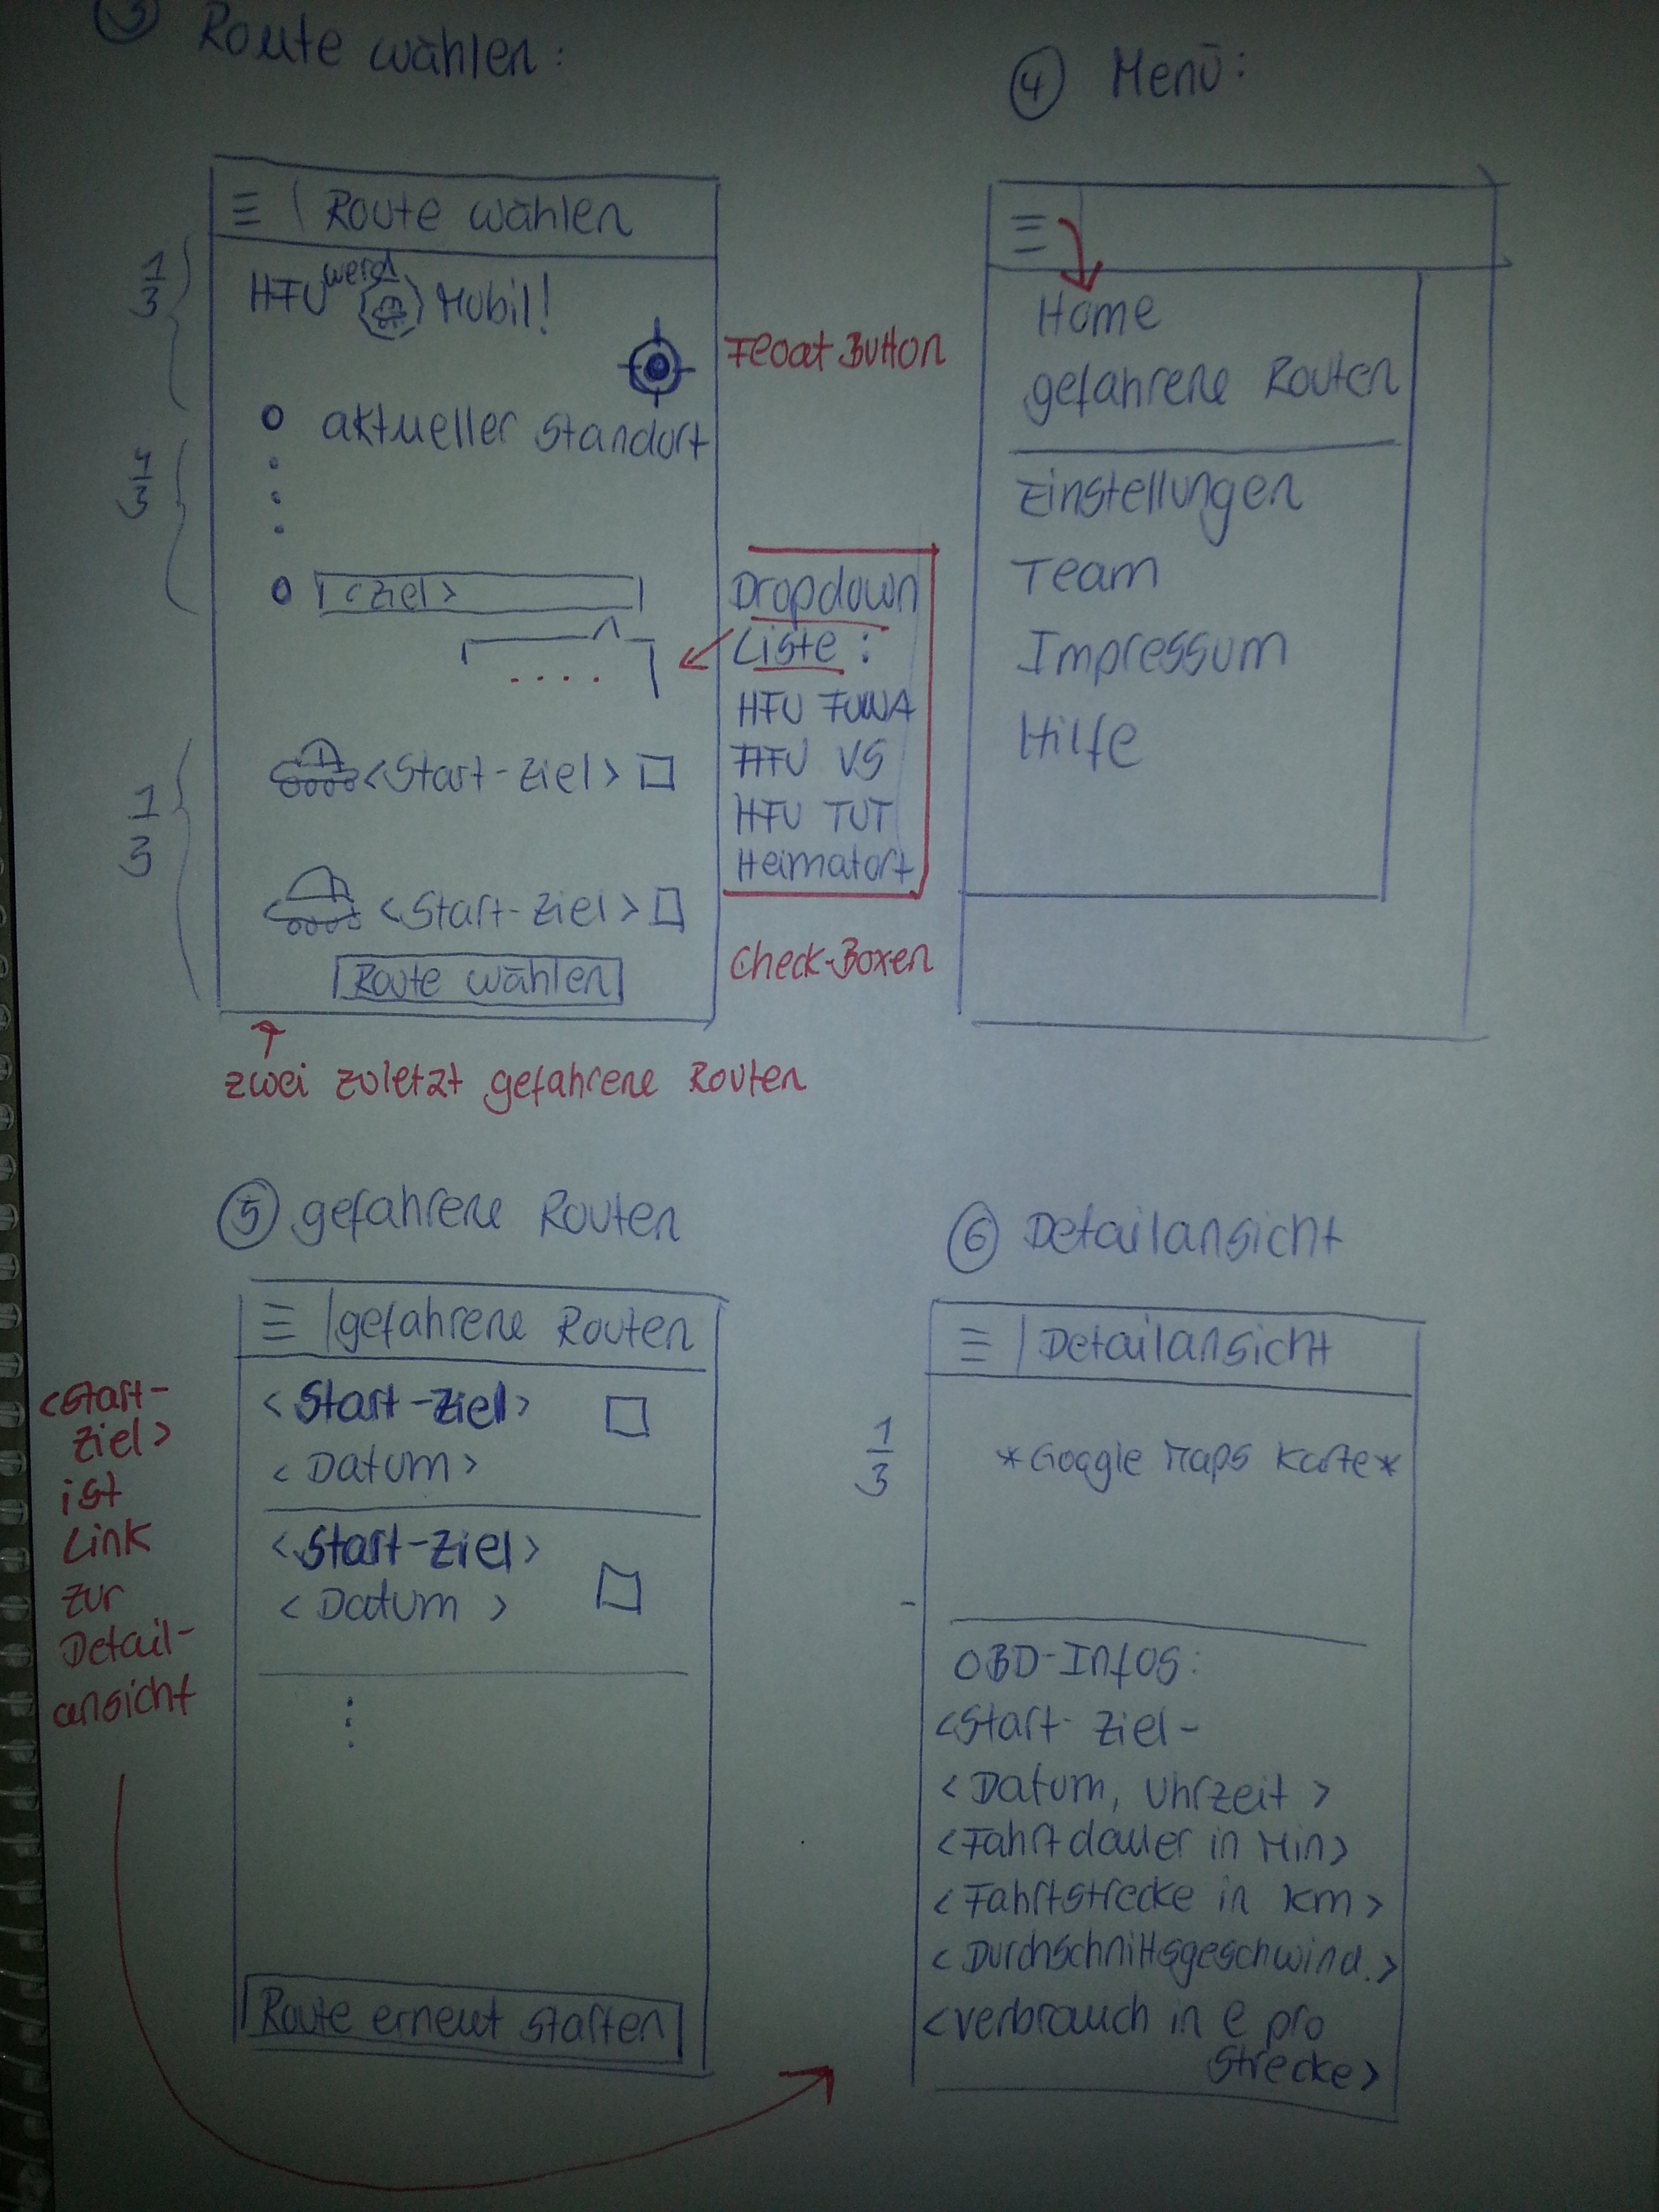 ③ Route wählen:
≡ | Route wählen
1/3
HFU werd Mobil!
Float Button
o aktueller Standort
1/3
o <Ziel>
Dropdown
Liste :
HFU FUWA
HFU VS
HFU TUT
Heimatort
1/3
<Start-Ziel> □
<Start-Ziel> □
Check-Boxen
Route wählen
zwei zuletzt gefahrene Routen
④ Menü:
≡
Home
gefahrene Routen
Einstellungen
Team
Impressum
Hilfe
⑤ gefahrene Routen
≡ | gefahrene Routen
<Start-Ziel> □
<Datum>
<Start-Ziel> □
<Datum >
Route erneut starten
<Start-
Ziel>
ist
Link
zur
Detail-
ansicht
⑥ Detailansicht
≡ | Detailansicht
1/3
*Google Maps Karte*
OBD-Infos:
<Start- Ziel-
<Datum, Uhrzeit >
<Fahrtdauer in Min>
<Fahrtstrecke in km>
<Durchschnittsgeschwind.>
<Verbrauch in l pro
Strecke>